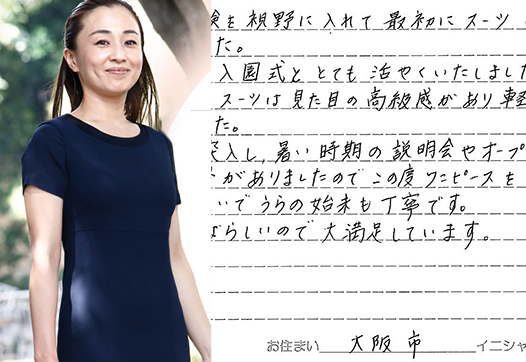 を視野に入れて最初にスーツ
た。
入園式ととても活やくいたしました
スーツは見た目の高級感があり軽
た。
入し、暑い時期の説明会やオープ
がありましたのでこの度ワンピースを
いでうらの始末も丁寧です。
らしいので大満足しています。
お住まい 大阪市 イニシャ